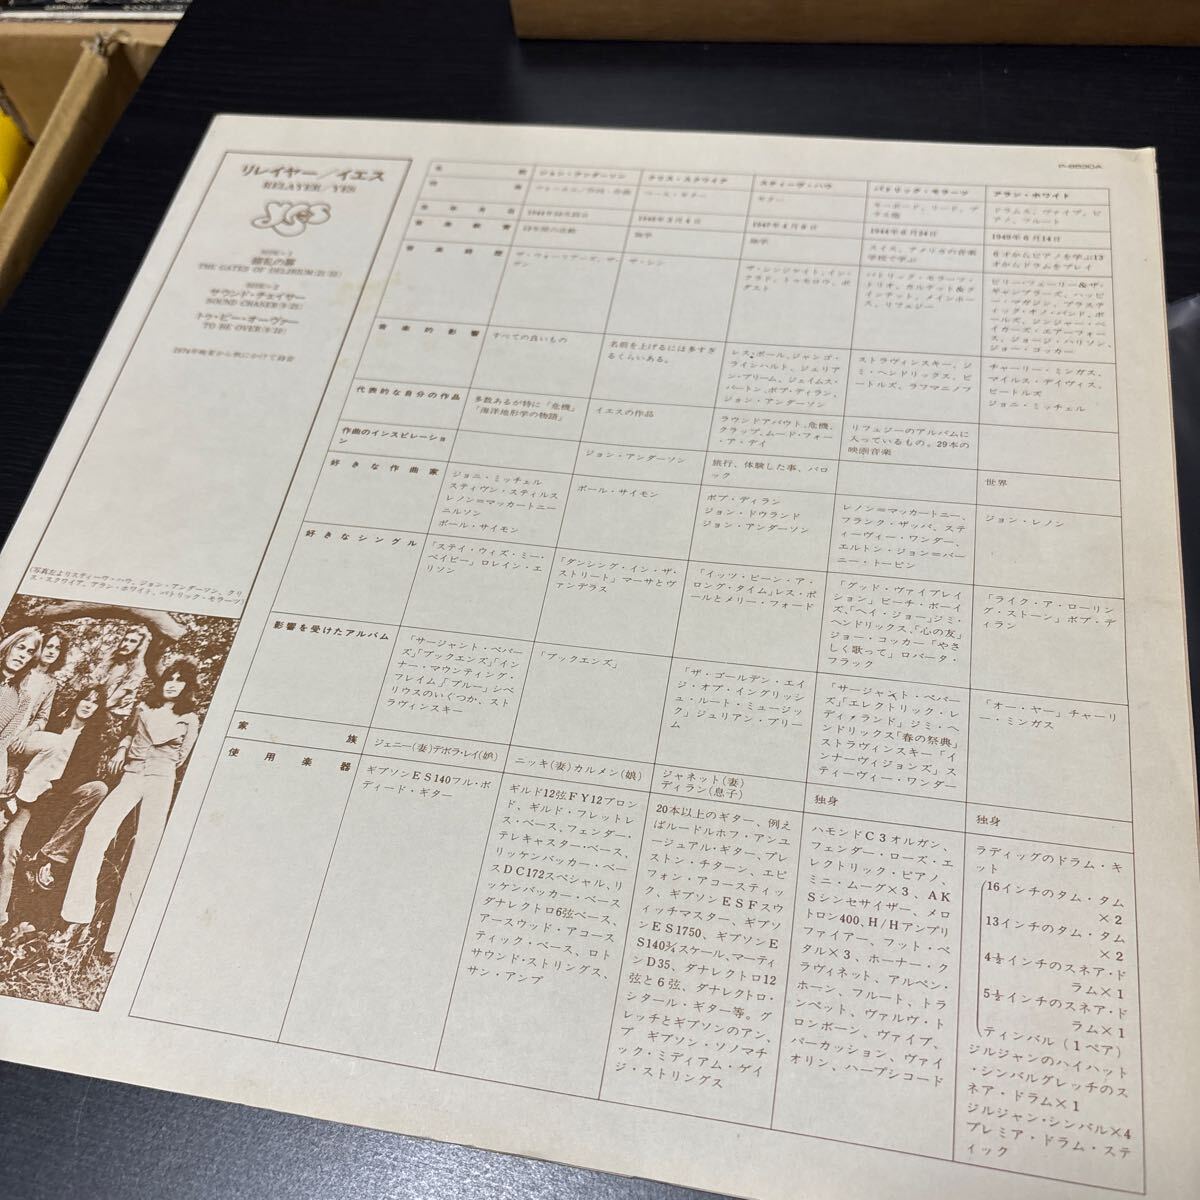 P-8530A
リレイヤー／イエス
RELAYER／YES
YES
SIDE-1
錯乱の扉
THE GATES OF DELIRIUM
SIDE-2
サウンド・チェイサー
SOUND CHASER
トゥ・ビー・オーヴァー
TO BE OVER
1974年晩夏から秋にかけて録音
(写真左よりスティーヴ・ハウ、ジョン・アンダーソン、クリ
ス・スクワイア、アラン・ホワイト、パトリック・モラーツ)
ジョン・アンダーソン
クリス・スクワイア
スティーヴ・ハウ
パトリック・モラーツ
アラン・ホワイト
ベース・ギター
ギター
キーボード、リード、ブ
ラス他
ドラムス、ヴァイブ、ピ
アノ、フルート
生年月日
1944年10月25日
1948年3月4日
1947年4月8日
1944年6月24日
1949年6月14日
音楽教育
独学
独学
スイス、アメリカの音楽
学校で学ぶ
6才からピアノを学ぶ13
才からドラムをプレイ
音楽経歴
ザ・ウォーリアーズ、ザ・
ガン
ザ・シン
ザ・シンジケイト、イン・
クラド、トゥモロウ、ボ
ダスト
パトリック・モラーツ・
トリオ、カルテット＆ク
インテット、メインホー
ス、リフュジー
ビリー・フューリー＆ザ・
ギャンブラーズ、ハッピ
ー・マガジン、プラステ
ィック・オノ・バンド、ボ
ールズ、ジンジャー・ベ
イカーズ・エアーフォー
ス、ジョージ・ハリソン、
ジョー・コッカー
音楽的影響
すべての良いもの
名前を上げるには多すぎ
るくらいある。
レス・ポール、ジャンゴ・
ラインハルト、ジュリア
ン・ブリーム、ジェイムス・
バートン、ボブ・ディラン、
ジョン・アンダーソン
ストラヴィンスキー、ジ
ミ・ヘンドリックス、ビ
ートルズ、ラフマニノフ
チャーリー・ミンガス、
マイルス・デイヴィス、
ビートルズ
ジョニ・ミッチェル
代表的な自分の作品
多数あるが特に「危機」
「海洋地形学の物語」
イエスの作品
ラウンドアバウト、危機、
クラップ、ムード・フォー
・ア・デイ
リフュジーのアルバムに
入っているもの。29本の
映画音楽
作曲のインスピレーショ
ン
ジョン・アンダーソン
旅行、体験した事、バロ
ック
世界
好きな作曲家
ジョニ・ミッチェル
スティヴン・スティルス
レノン＝マッカートニー
ニルソン
ポール・サイモン
ポール・サイモン
ボブ・ディラン
ジョン・ドウランド
ジョン・アンダーソン
レノン＝マッカートニー、
フランク・ザッパ、ステ
ィーヴィー・ワンダー、
エルトン・ジョン＝バー
ニー・トーピン
ジョン・レノン
好きなシングル
「ステイ・ウィズ・ミー・
ベイビー」ロレイン・エ
リソン
「ダンシング・イン・ザ・
ストリート」マーサとヴ
ァンデラス
「イッツ・ビーン・ア・
ロング・タイム」レス・ポ
ールとメリー・フォード
「グッド・ヴァイブレイ
ション」ビーチ・ボーイ
ズ、「ヘイ・ジョー」ジミ・
ヘンドリックス、「心の友」
ジョー・コッカー「やさ
しく歌って」ロバータ・
フラック
「ライク・ア・ローリン
グ・ストーン」ボブ・デ
ィラン
影響を受けたアルバム
「サージャント・ペパー
ズ」「ブックエンズ」「イン
ナー・マウンティング・
フレイム」「ブルー」シベ
リウスのいくつか、スト
ラヴィンスキー
「ブックエンズ」
「ザ・ゴールデン・エイ
ジ・オブ・イングリッシ
ュ・ルート・ミュージッ
ク」ジュリアン・ブリー
ム
「サージャント・ペパー
ズ」「エレクトリック・レ
ディ・ランド」ジミ・ヘ
ンドリックス「春の祭典」
ストラヴィンスキー「イ
ンナーヴィジョンズ」ス
ティーヴィー・ワンダー
「オー・ヤー」チャーリ
ー・ミンガス
家族
ジェニー(妻)デボラ・レイ(娘)
ニッキ(妻)カルメン(娘)
ジャネット(妻)
ディラン(息子)
独身
独身
使用楽器
ギブソンES140フル・ボ
ディード・ギター
ギルド12弦FY12ブロン
ド、ギルド・フレットレ
ス・ベース、フェンダー・
テレキャスター・ベース、
リッケンバッカー・ベー
スDC172スペシャル、リ
ッケンバッカー・ベース
ダナレクトロ6弦ベース、
アースウッド・アコース
ティック・ベース、ロト
サウンド・ストリングス、
サン・アンプ
20本以上のギター、例え
ばルードルホフ・アンユ
ージュアル・ギター、プレ
ストン・チターン、エピ
フォン・アコースティッ
ク、ギブソンESFスウ
ィッチマスター、ギブソ
ンES1750、ギブソンE
S140¾スケール、マーティ
ンD35、ダナレクトロ12
弦と6弦、ダナレクトロ・
シタール・ギター等。グ
レッチとギブソンのアン
プ　ギブソン・ソノマチ
ック・ミディアム・ゲイ
ジ・ストリングス
ハモンドC3オルガン、
フェンダー・ローズ・エ
レクトリック・ピアノ、
ミニ・ムーグ×3、AK
Sシンセサイザー、メロ
トロン400、H/Hアンプリ
ファイアー、フット・ペ
タル×3、ホーナー・ク
ラヴィネット、アルペン・
ホーン、フルート、トラ
ンペット、ヴァルヴ・ト
ロンボーン、ヴァイブ、
パーカッション、ヴァイ
オリン、ハープシコード
ラディッグのドラム・キ
ット
16インチのタム・タム
×2
13インチのタム・タム
×2
4½インチのスネア・ド
ラム×1
5½インチのスネア・ド
ラム×1
ティンバル(1ペア)
ジルジャンのハイハット
・シンバルグレッチのス
ネア・ドラム×1
ジルジャン・シンバル×4
プレミア・ドラム・ステ
ィック